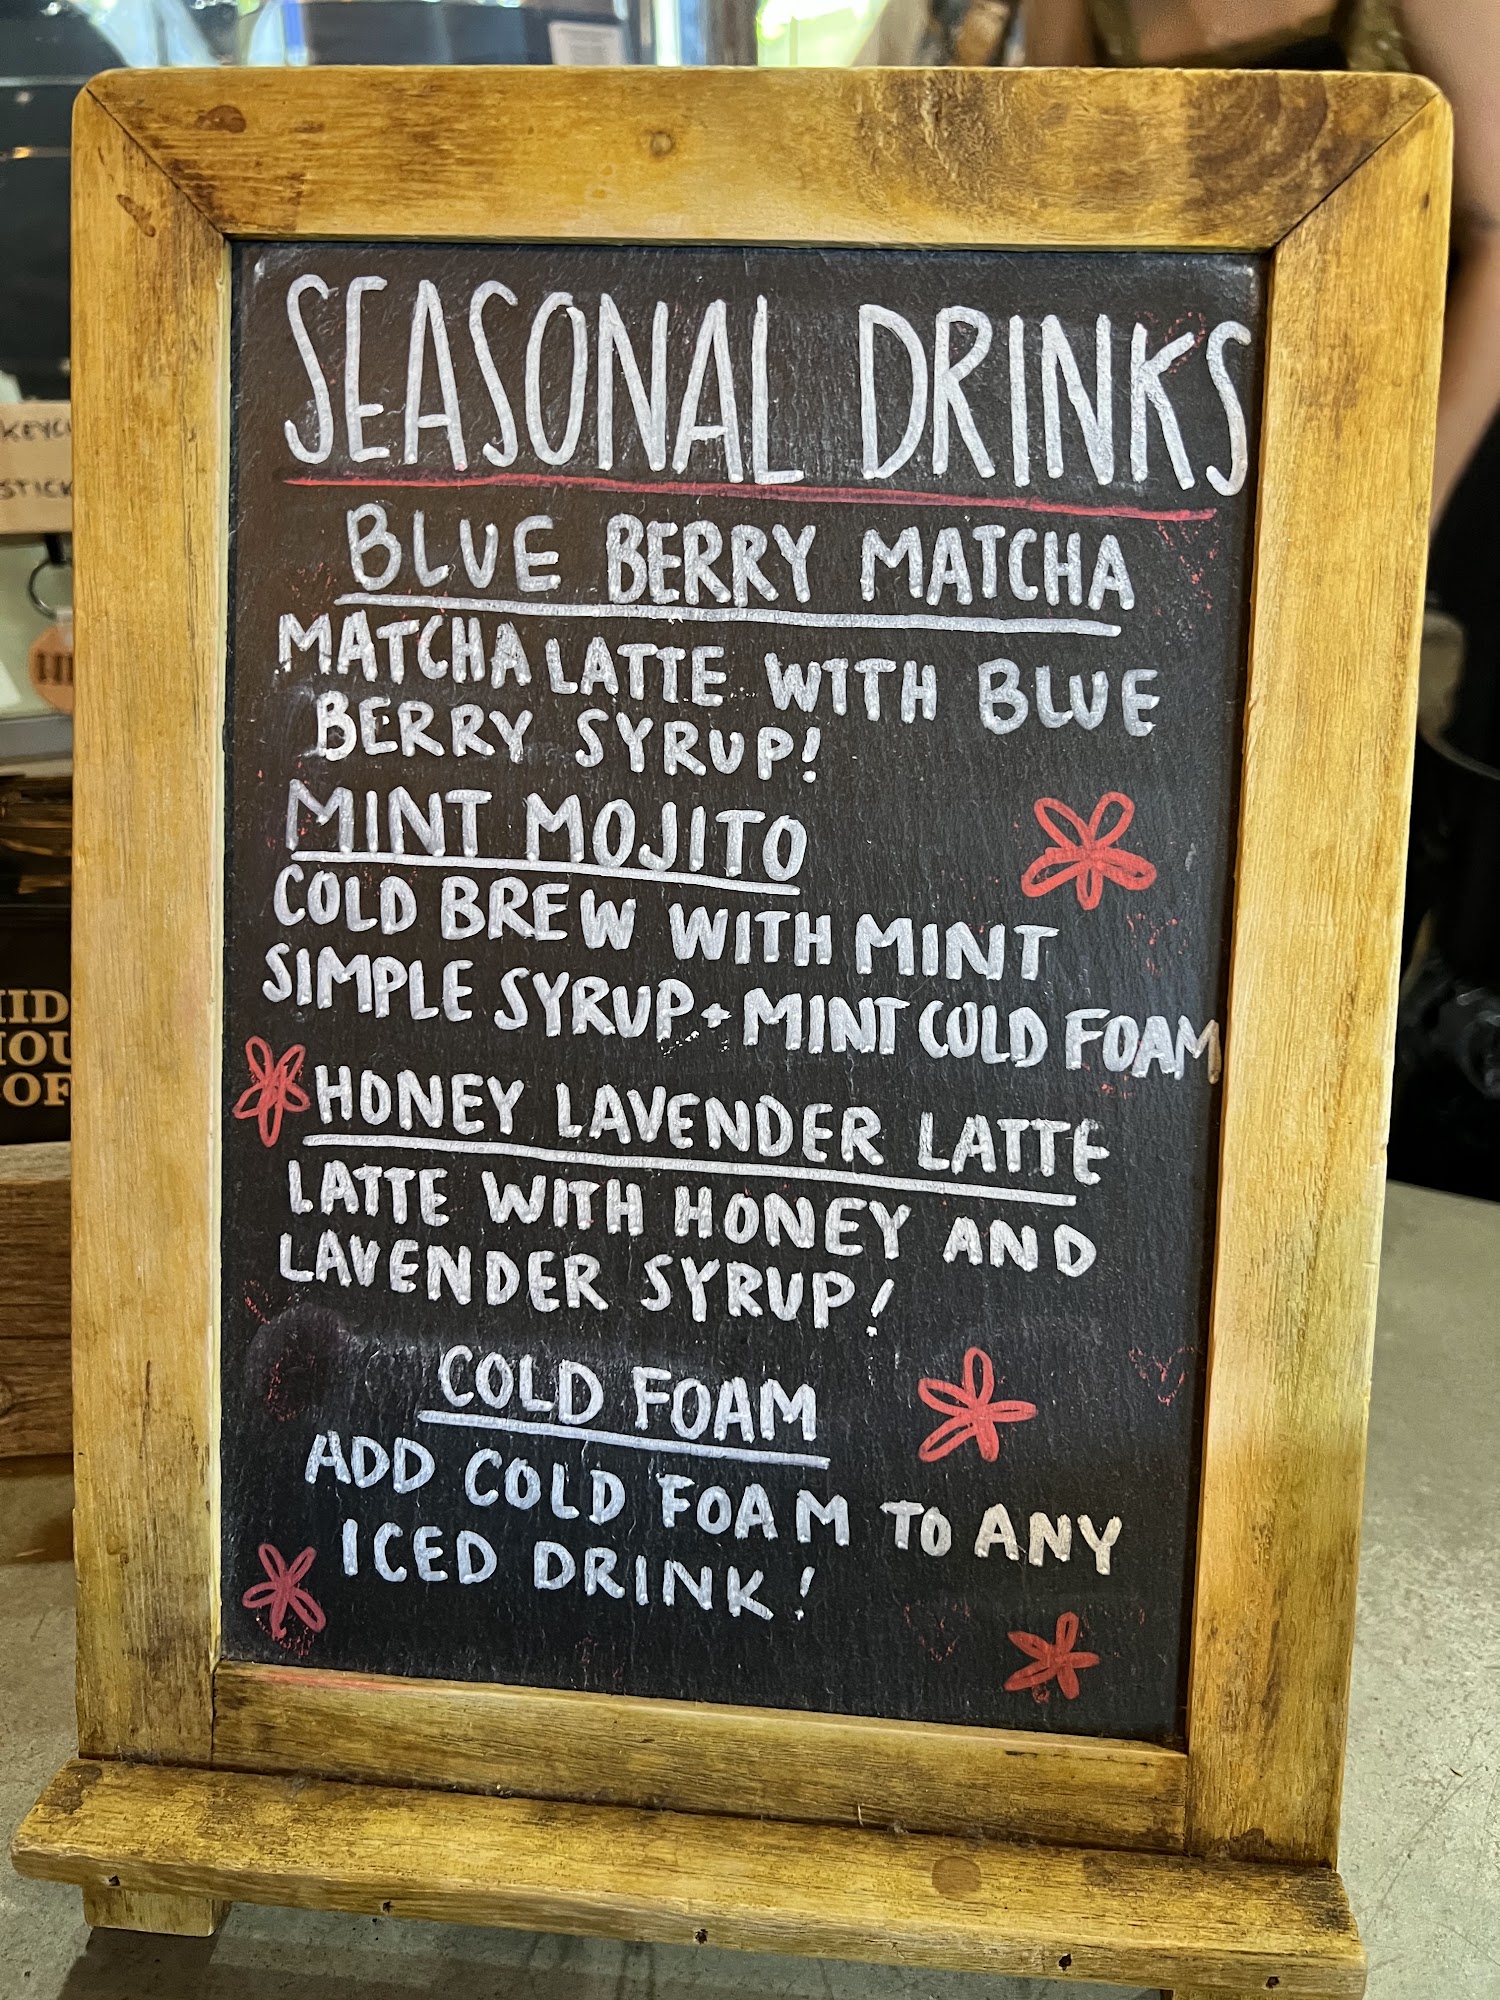 SEASONAL DRINKS
BLUE BERRY MATCHA
MATCHA LATTE WITH BLUE
BERRY SYRUP!
MINT MOJITO
COLD BREW WITH MINT
SIMPLE SYRUP + MINT COLD FOAM
HONEY LAVENDER LATTE
LATTE WITH HONEY AND
LAVENDER SYRUP!
COLD FOAM
ADD COLD FOAM TO ANY
ICED DRINK!
STICK